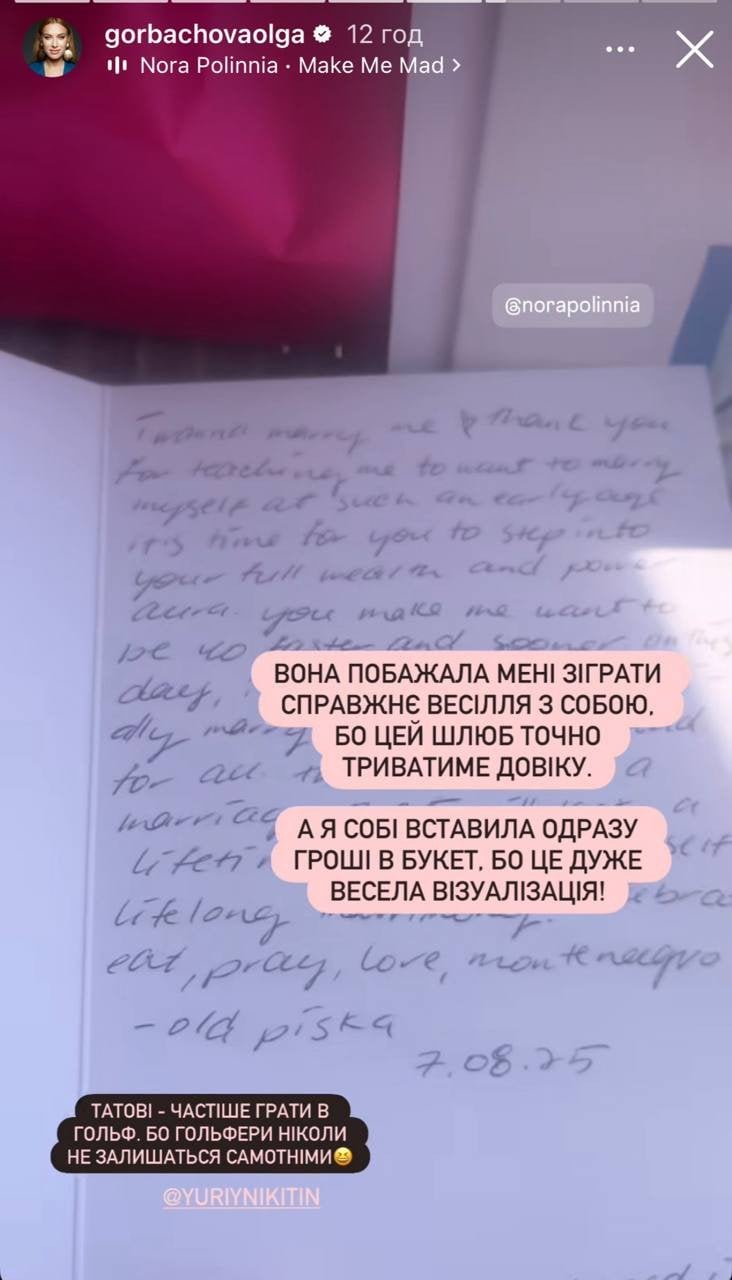 gorbachovaolga 12 год
Nora Polinnia · Make Me Mad >
@norapolinnia
I wanna marry me & thank you
for teaching me to want to marry
myself at such an early age
it's time for you to step into
your full wealth and power
aura. you make me want to
be 40 faster and sooner on
day,
ally
for all a
marriage a
lifeti self
lifelong
eat, pray, love, montenegro
- old piska
7.08.25
ВОНА ПОБАЖАЛА МЕНІ ЗІГРАТИ
СПРАВЖНЄ ВЕСІЛЛЯ З СОБОЮ,
БО ЦЕЙ ШЛЮБ ТОЧНО
ТРИВАТИМЕ ДОВІКУ.
А Я СОБІ ВСТАВИЛА ОДРАЗУ
ГРОШІ В БУКЕТ, БО ЦЕ ДУЖЕ
ВЕСЕЛА ВІЗУАЛІЗАЦІЯ!
ТАТОВІ - ЧАСТІШЕ ГРАТИ В
ГОЛЬФ. БО ГОЛЬФЕРИ НІКОЛИ
НЕ ЗАЛИШАТЬСЯ САМОТНІМИ😆
@YURIYNIKITIN